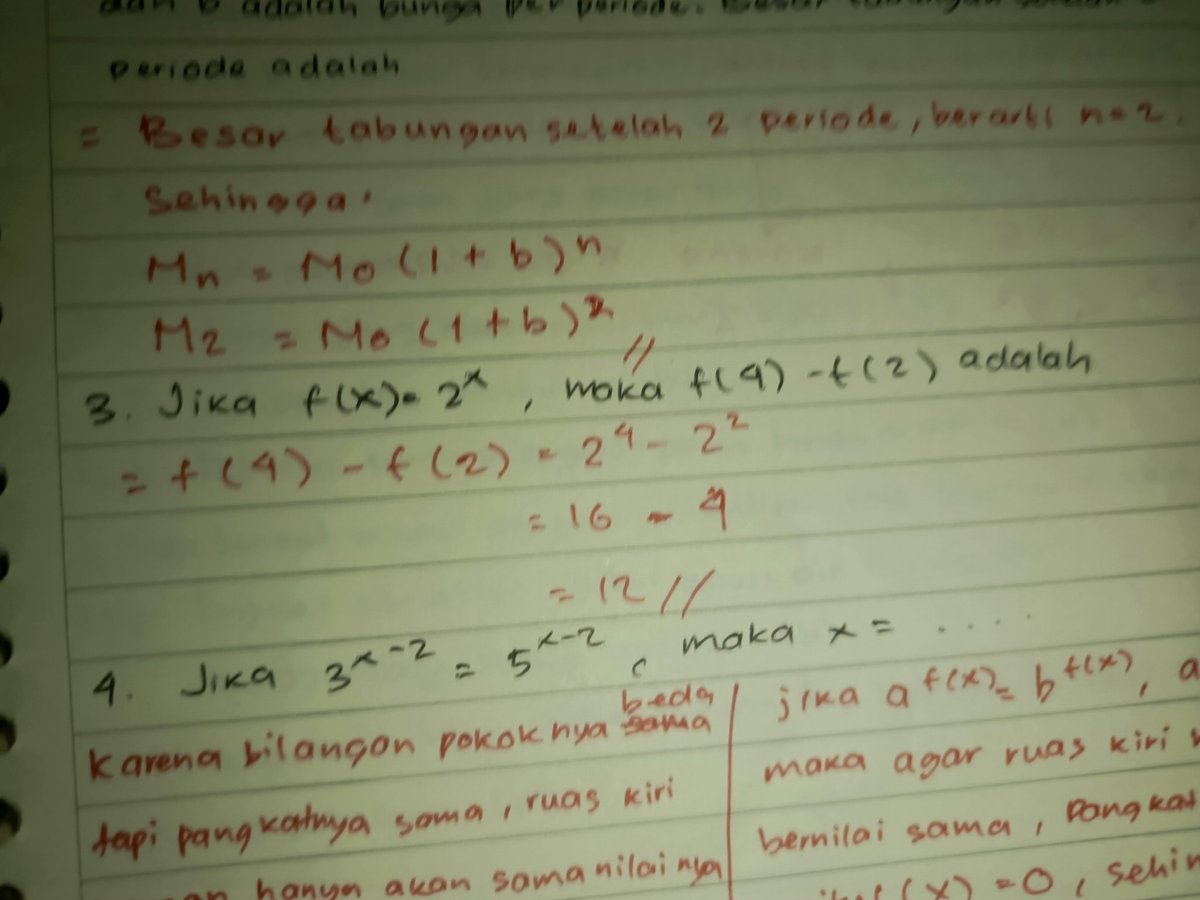 dan b adalah bunga per periode. Besar tabungan setelah 2
periode adalah
= Besar tabungan setelah 2 periode, berarti n = 2.
Sehingga.
Mn = Mo (1 + b)ⁿ
M2 = Mo (1 + b)² //
3. Jika f(x) = 2ˣ, maka f(4) - f(2) adalah
= f(4) - f(2) = 2⁴ - 2²
= 16 - 4
= 12 //
4. Jika 3ˣ⁻² = 5ˣ⁻², maka x = ....
beda
karena bilangan pokoknya sama
tapi pangkatnya sama, ruas kiri
hanya akan sama nilainya
jika a^f(x) = b^f(x), a
maka agar ruas kiri
bernilai sama, pangkat
f(x) = 0, sehin